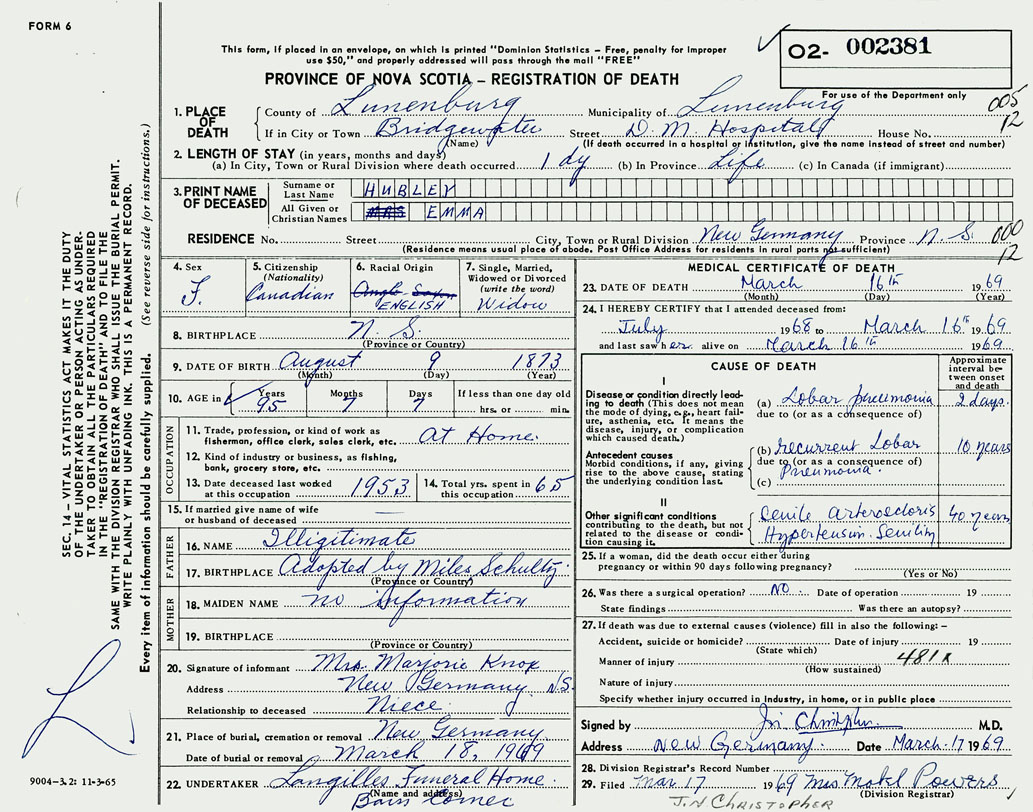 FORM 6
This form, if placed in an envelope, on which is printed "Dominion Statistics – Free, penalty for improper
use $50," and properly addressed will pass through the mail "FREE"
O2- 002381
PROVINCE OF NOVA SCOTIA – REGISTRATION OF DEATH
For use of the Department only
1. PLACE OF DEATH County of Lunenburg Municipality of Lunenburg 005
If in City or Town Bridgewater Street D. M. Hospital House No. 12
(Name) (If death occurred in a hospital or institution, give the name instead of street and number)
2. LENGTH OF STAY (in years, months and days)
(a) In City, Town or Rural Division where death occurred 1 dy (b) In Province Life (c) In Canada (if immigrant)
3. PRINT NAME OF DECEASED Surname or Last Name HUBLEY
All Given or Christian Names MRS EMMA
RESIDENCE No. Street City, Town or Rural Division New Germany Province N. S. 000
(Residence means usual place of abode. Post Office Address for residents in rural parts not sufficient) 12
4. Sex F.
5. Citizenship (Nationality) Canadian
6. Racial Origin Anglo Saxon ENGLISH
7. Single, Married, Widowed or Divorced (write the word) Widow
8. BIRTHPLACE N. S.
(Province or Country)
9. DATE OF BIRTH August 9 1873
(Month) (Day) (Year)
10. AGE in Years 95 Months 7 Days 7 If less than one day old
hrs. or min.
OCCUPATION
11. Trade, profession or kind of work as
fisherman, office clerk, sales clerk, etc. At Home.
12. Kind of industry or business, as fishing,
bank, grocery store, etc.
13. Date deceased last worked at this occupation 1953 14. Total yrs. spent in this occupation 65
15. If married give name of wife
or husband of deceased —
FATHER
16. NAME Illigitimate
17. BIRTHPLACE Adopted by Miles Schultz
(Province or Country)
MOTHER
18. MAIDEN NAME no information
19. BIRTHPLACE
(Province or Country)
20. Signature of informant Mrs Marjorie Knox
Address New Germany N.S.
Relationship to deceased Niece
21. Place of burial, cremation or removal New Germany
Date of burial or removal March 18, 1969
22. UNDERTAKER Langilles Funeral Home.
(Name and address)
Barss Corner
MEDICAL CERTIFICATE OF DEATH
23. DATE OF DEATH March 16th 1969
(Month) (Day) (Year)
24. I HEREBY CERTIFY that I attended deceased from:
July 1968 to March 16th 1969
and last saw her alive on March 16th 1969
CAUSE OF DEATH Approximate interval between onset and death
I
Disease or condition directly leading to death (This does not mean the mode of dying, e.g., heart failure, asthenia, etc. It means the disease, injury, or complication which caused death.)
(a) Lobar pneumonia 2 days.
due to (or as a consequence of)
Antecedent causes
Morbid conditions, if any, giving rise to the above cause, stating the underlying condition last.
(b) recurrent Lobar 10 years
due to (or as a consequence of)
Pneumonia.
(c)
II
Other significant conditions
contributing to the death, but not related to the disease or condition causing it.
Cenile arteroscloris 40 years
Hypertension. Senility
25. If a woman, did the death occur either during
pregnancy or within 90 days following pregnancy?
(Yes or No)
26. Was there a surgical operation? NO Date of operation 19
State findings Was there an autopsy?
27. If death was due to external causes (violence) fill in also the following: –
Accident, suicide or homicide? Date of injury 19
(State which)
Manner of injury 481X
(How sustained)
Nature of injury
Specify whether injury occurred in industry, in home, or in public place
Signed by J.N. Christopher M.D.
Address New Germany. Date March 17 1969
28. Division Registrar's Record Number
29. Filed Mar 17 1969 Mrs Mabel Powers
(Division Registrar)
J.N CHRISTOPHER
SEC. 14 – VITAL STATISTICS ACT MAKES IT THE DUTY
OF THE UNDERTAKER OR PERSON ACTING AS UNDER-
TAKER TO OBTAIN ALL THE PARTICULARS REQUIRED
IN THE "REGISTRATION OF DEATH" AND TO FILE THE
SAME WITH THE DIVISION REGISTRAR WHO SHALL ISSUE THE BURIAL PERMIT.
WRITE PLAINLY WITH UNFADING INK. THIS IS A PERMANENT RECORD.
Every item of information should be carefully supplied. (See reverse side for instructions.)
9004-3.2: 11-3-65